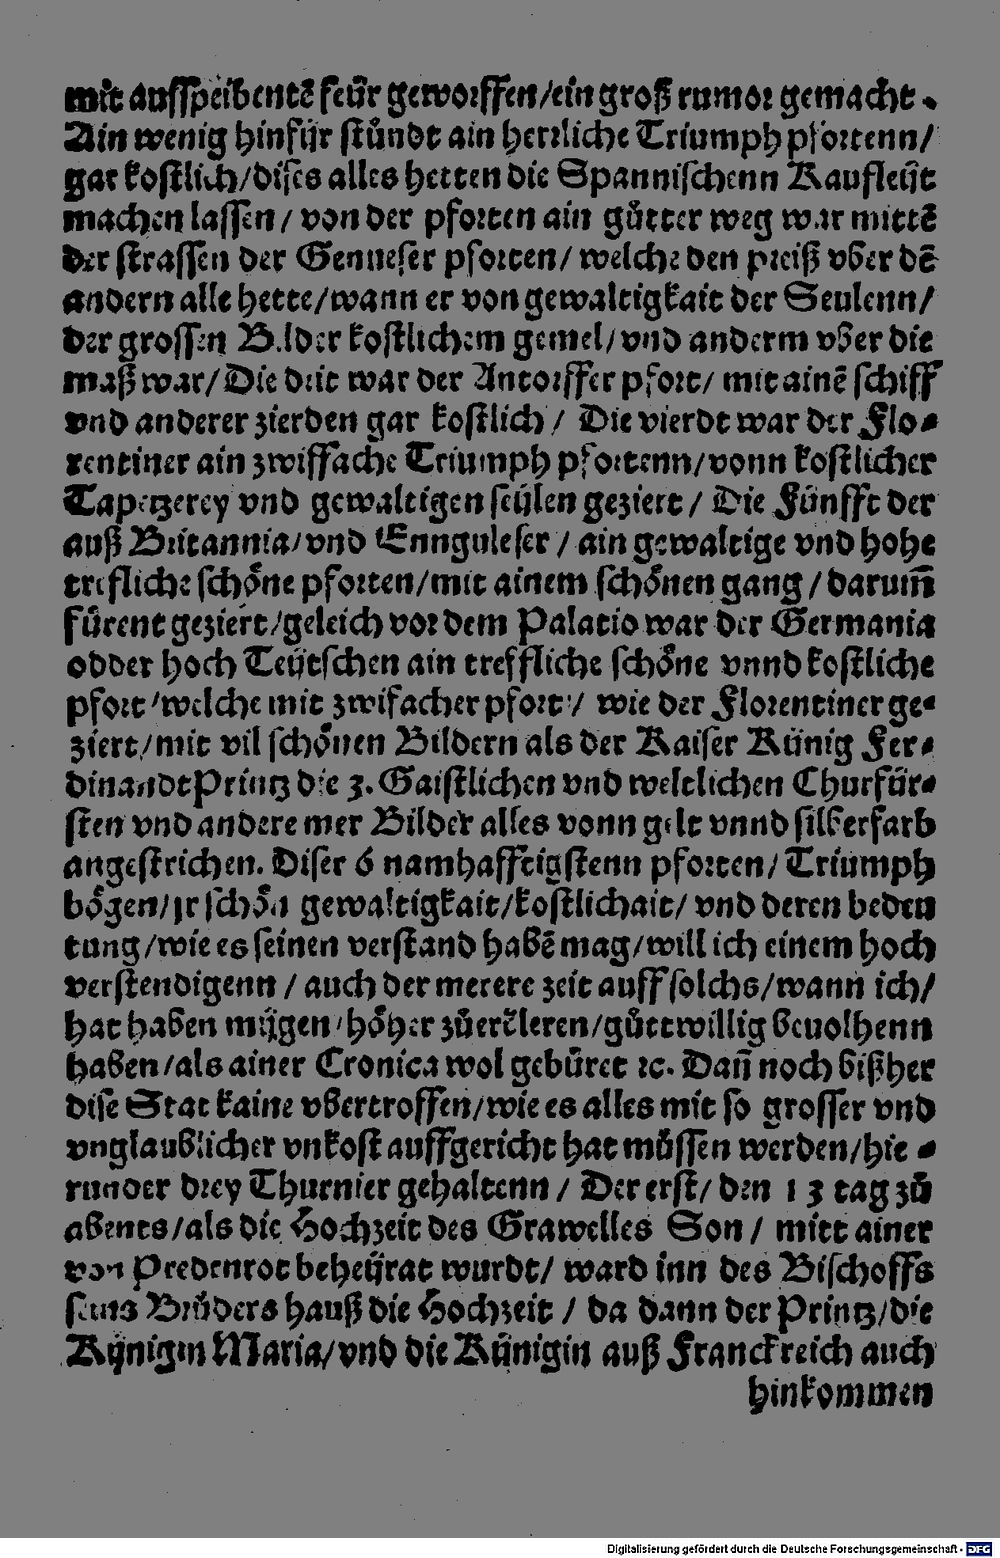 mit ausspeibentē feür geworffen/ein groß rumor gemacht.
Ain wenig hinfür stůndt ain herrliche Triumph pfortenn/
gar kostlich/dises alles hetten die Spannischenn Kaufleüt
machen lassen / von der pforten ain gůtter weg war mittē
der strassen der Genueser pforten/ welche den preiß vber dē
andern alle hette/wann er von gewaltigkait der Seulenn/
der grossen Bilder kostlichem gemel/vnd anderm vber die
maß war/Die drit war der Antorffer pfort/ mit ainē schiff
vnd anderer zierden gar kostlich / Die vierdt war der Flo-
rentiner ain zwiffache Triumph pfortenn/vonn kostlicher
Tapetzerey vnd gewaltigen seülen geziert / Die Fünfft der
auß Britannia/vnd Ennguleser / ain gewaltige vnd hohe
trefliche schöne pforten/mit ainem schönen gang / darumm̄
fürent geziert/geleich vor dem Palatio war der Germania
odder hoch Teütschen ain treffliche schöne vnnd kostliche
pfort/welche mit zwifacher pfort/ wie der Florentiner ge-
ziert/mit vil schönen Bildern als der Kaiser Künig Fer-
dinandt Printz die 3. Gaistlichen vnd weltlichen Churfür-
sten vnd andere mer Bilder alles vonn gelt vnnd silberfarb
angestrichen. Diser 6 namhafftigstenn pforten/ Triumph
bögen/jr schön gewaltigkait/kostlichait/ vnd deren bedeu
tung/wie es seinen verstand habē mag/will ich einem hoch
verstendigenn / auch der merere zeit auff solchs/wann ich/
hat haben mügen/höher zůerčleren/gůttwillig beuolhenn
haben/als ainer Cronica wol gebüret ꝛc. Dañ noch bißher
dise Stat kaine vbertroffen/wie es alles mit so grosser vnd
vnglaublicher vnkost auffgericht hat müssen werden/hie-
runder drey Thurnier gehaltenn / Der erst/ den 13 tag zů
abents/als die Hochzeit des Grawelles Son / mitt ainer
von Predenrot beheürat wurdt/ ward inn des Bischoffs
seins Brůders hauß die Hochzeit / da dann der Printz/die
Künigin Maria/vnd die Künigin auß Franckreich auch
hinkommen
Digitalisierung gefördert durch die Deutsche Forschungsgemeinschaft - DFG